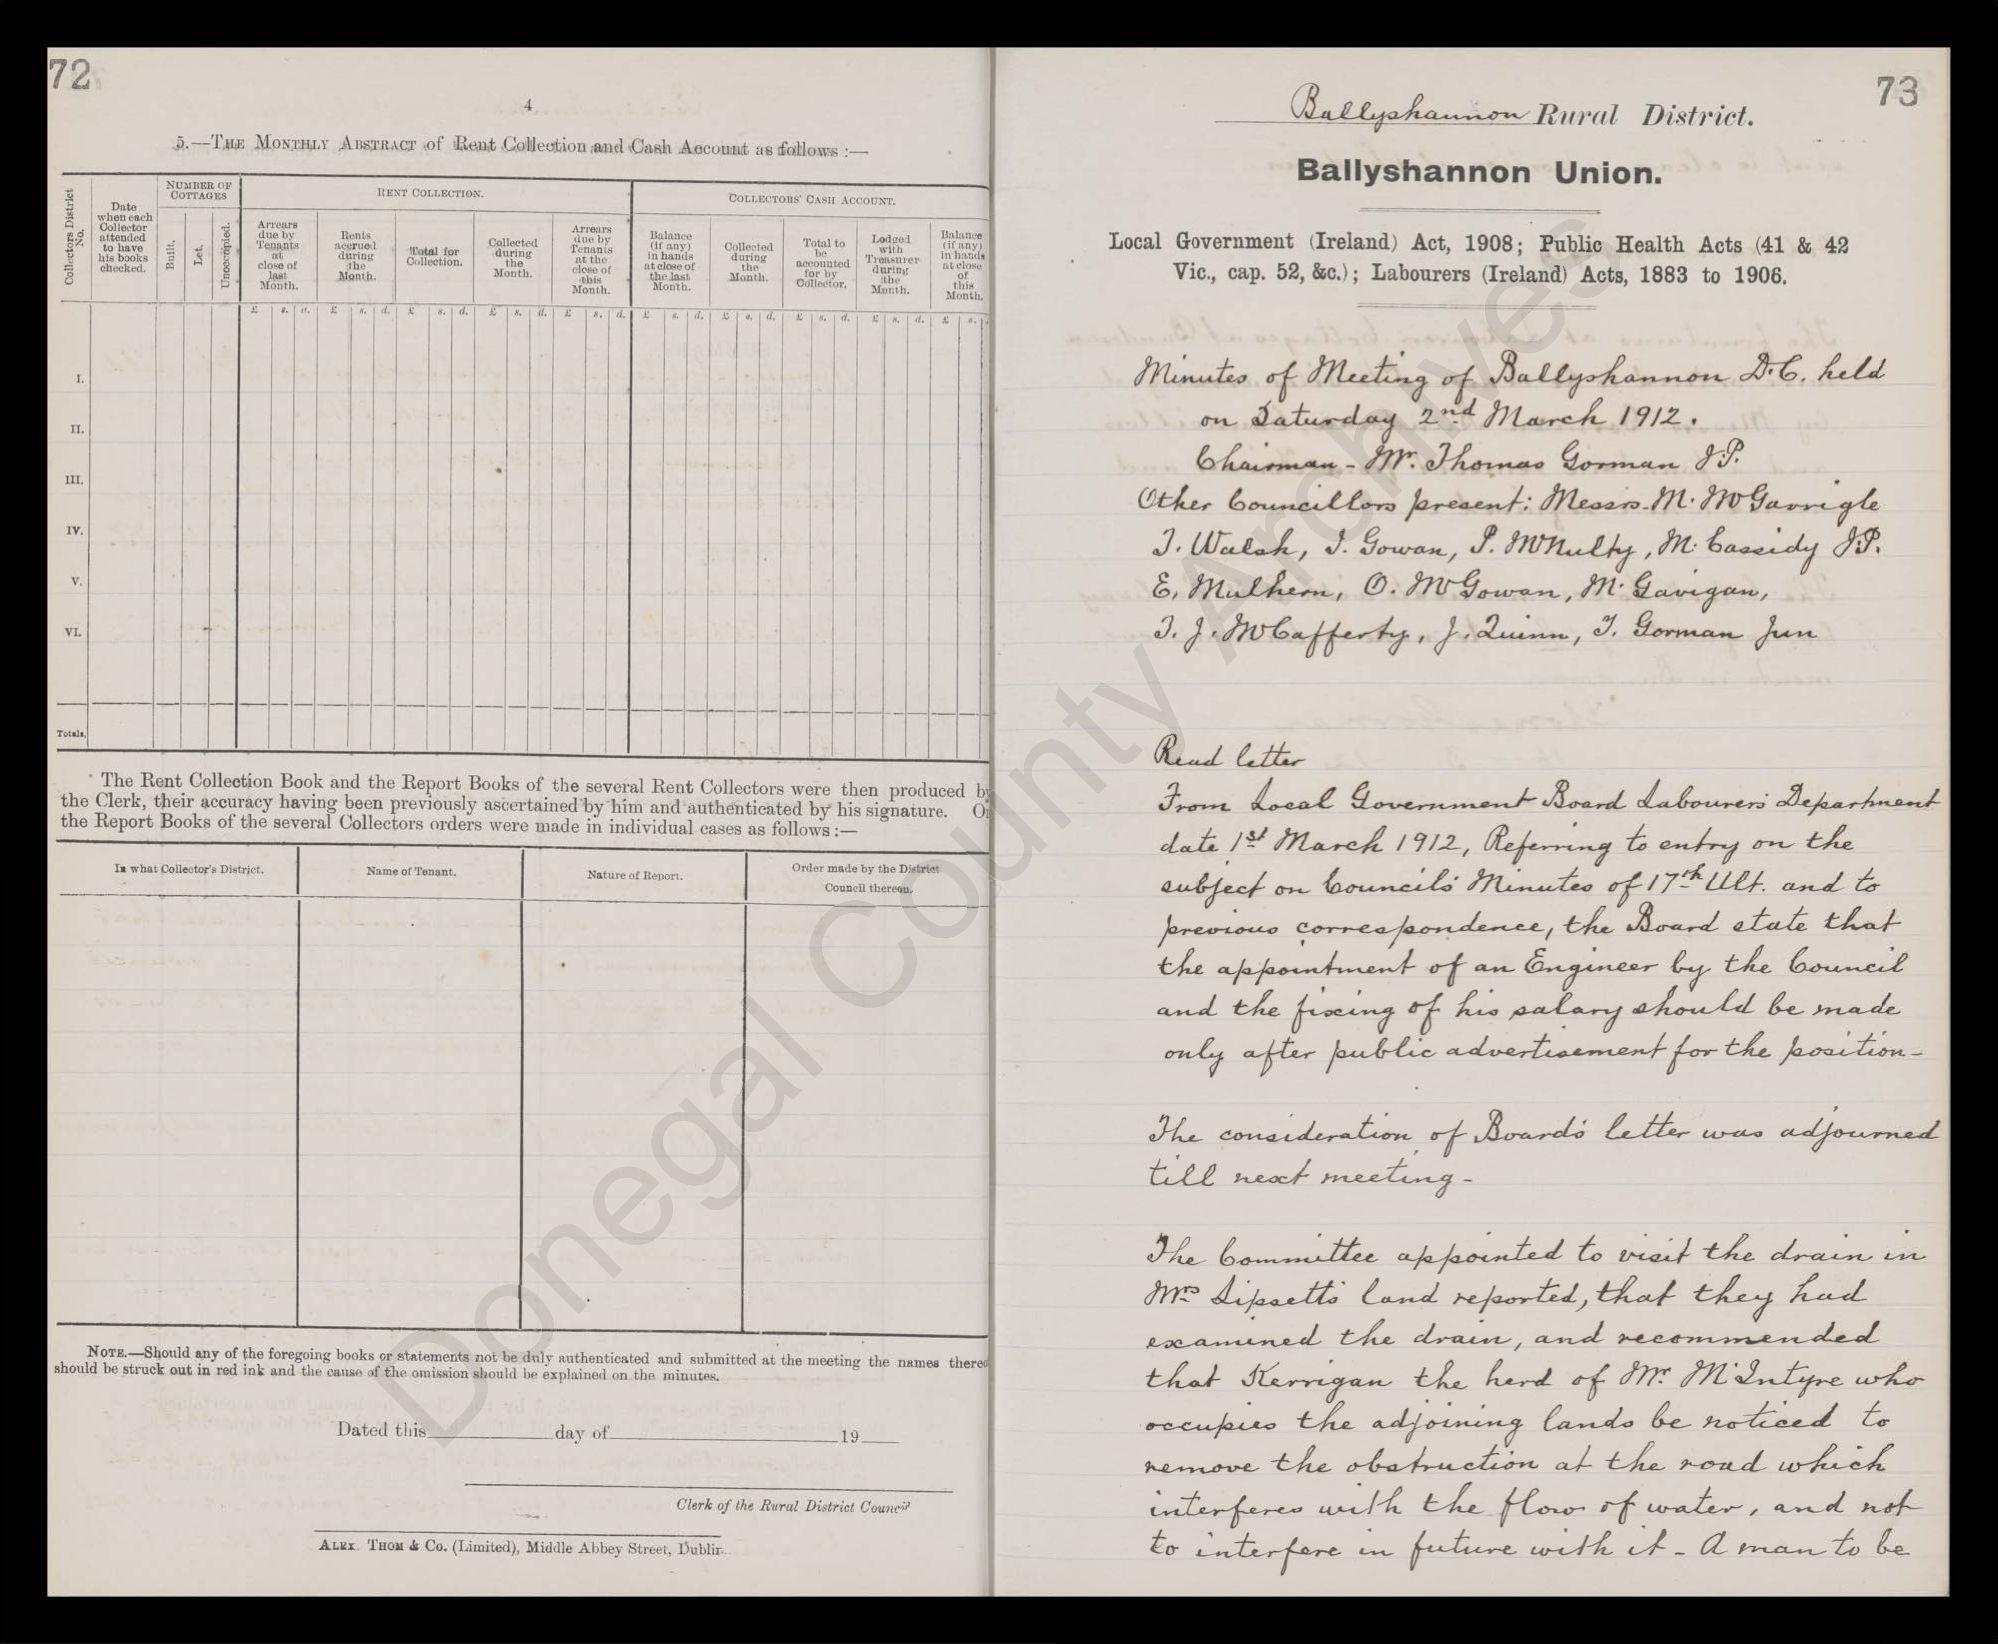 72
4
5.—THE MONTHLY ABSTRACT of Rent Collection and Cash Account as follows :—
Collectors District No.
Date when each Collector attended to have his books checked.
NUMBER OF COTTAGES
Built.
Let.
Unoccupied.
RENT COLLECTION.
Arrears due by Tenants at close of last Month.
Rents accrued during the Month.
Total for Collection.
Collected during the Month.
Arrears due by Tenants at the close of this Month.
COLLECTORS' CASH ACCOUNT.
Balance (if any) in hands at close of the last Month.
Collected during the Month.
Total to be accounted for by Collector.
Lodged with Treasurer during the Month.
Balance (if any) in hands at close of this Month.
£ s. d. £ s. d. £ s. d. £ s. d. £ s. d. £ s. d. £ s. d. £ s. d. £ s. d. £ s.
I.
II.
III.
IV.
V.
VI.
Totals,
The Rent Collection Book and the Report Books of the several Rent Collectors were then produced by
the Clerk, their accuracy having been previously ascertained by him and authenticated by his signature. On
the Report Books of the several Collectors orders were made in individual cases as follows :—
In what Collector's District.
Name of Tenant.
Nature of Report.
Order made by the District
Council thereon.
NOTE.—Should any of the foregoing books or statements not be duly authenticated and submitted at the meeting the names thereo
should be struck out in red ink and the cause of the omission should be explained on the minutes.
Dated this day of 19
Clerk of the Rural District Council
ALEX. THOM & Co. (Limited), Middle Abbey Street, Dublin.
73
Ballyshannon Rural District.
Ballyshannon Union.
Local Government (Ireland) Act, 1908; Public Health Acts (41 & 42
Vic., cap. 52, &c.); Labourers (Ireland) Acts, 1883 to 1906.
Minutes of Meeting of Ballyshannon D.C. held
on Saturday 2nd March 1912.
Chairman - Mr. Thomas Gorman J.P.
Other Councillors present: Messrs. M. McGarrigle
T. Walsh, J. Gowan, P. McNulty, M. Cassidy J.P.
E. Mulhern, O. McGowan, M. Gavigan,
T. J. McCafferty, J. Quinn, T. Gorman Jun
Read letter
From Local Government Board Labourers Department
date 1st March 1912, Referring to entry on the
subject on Council's Minutes of 17th Ult. and to
previous correspondence, the Board state that
the appointment of an Engineer by the Council
and the fixing of his salary should be made
only after public advertisement for the position -
The consideration of Board's letter was adjourned
till next meeting -
The Committee appointed to visit the drain in
Mrs Lipsett's land reported, that they had
examined the drain, and recommended
that Kerrigan the herd of Mr. McIntyre who
occupies the adjoining lands be noticed to
remove the obstruction at the road which
interferes with the flow of water, and not
to interfere in future with it - A man to be
Donegal County Archives